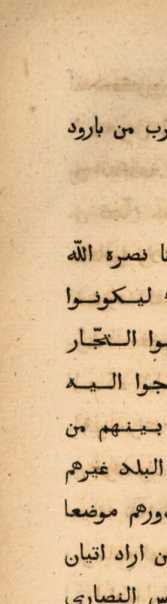 رب من بارود
نا نصرة الله
ليكونوا
وا التجّار
جوا اليه
بينهم من
البلد غيرهم
دورهم موضعا
ن اراد اتيان
س النصارى